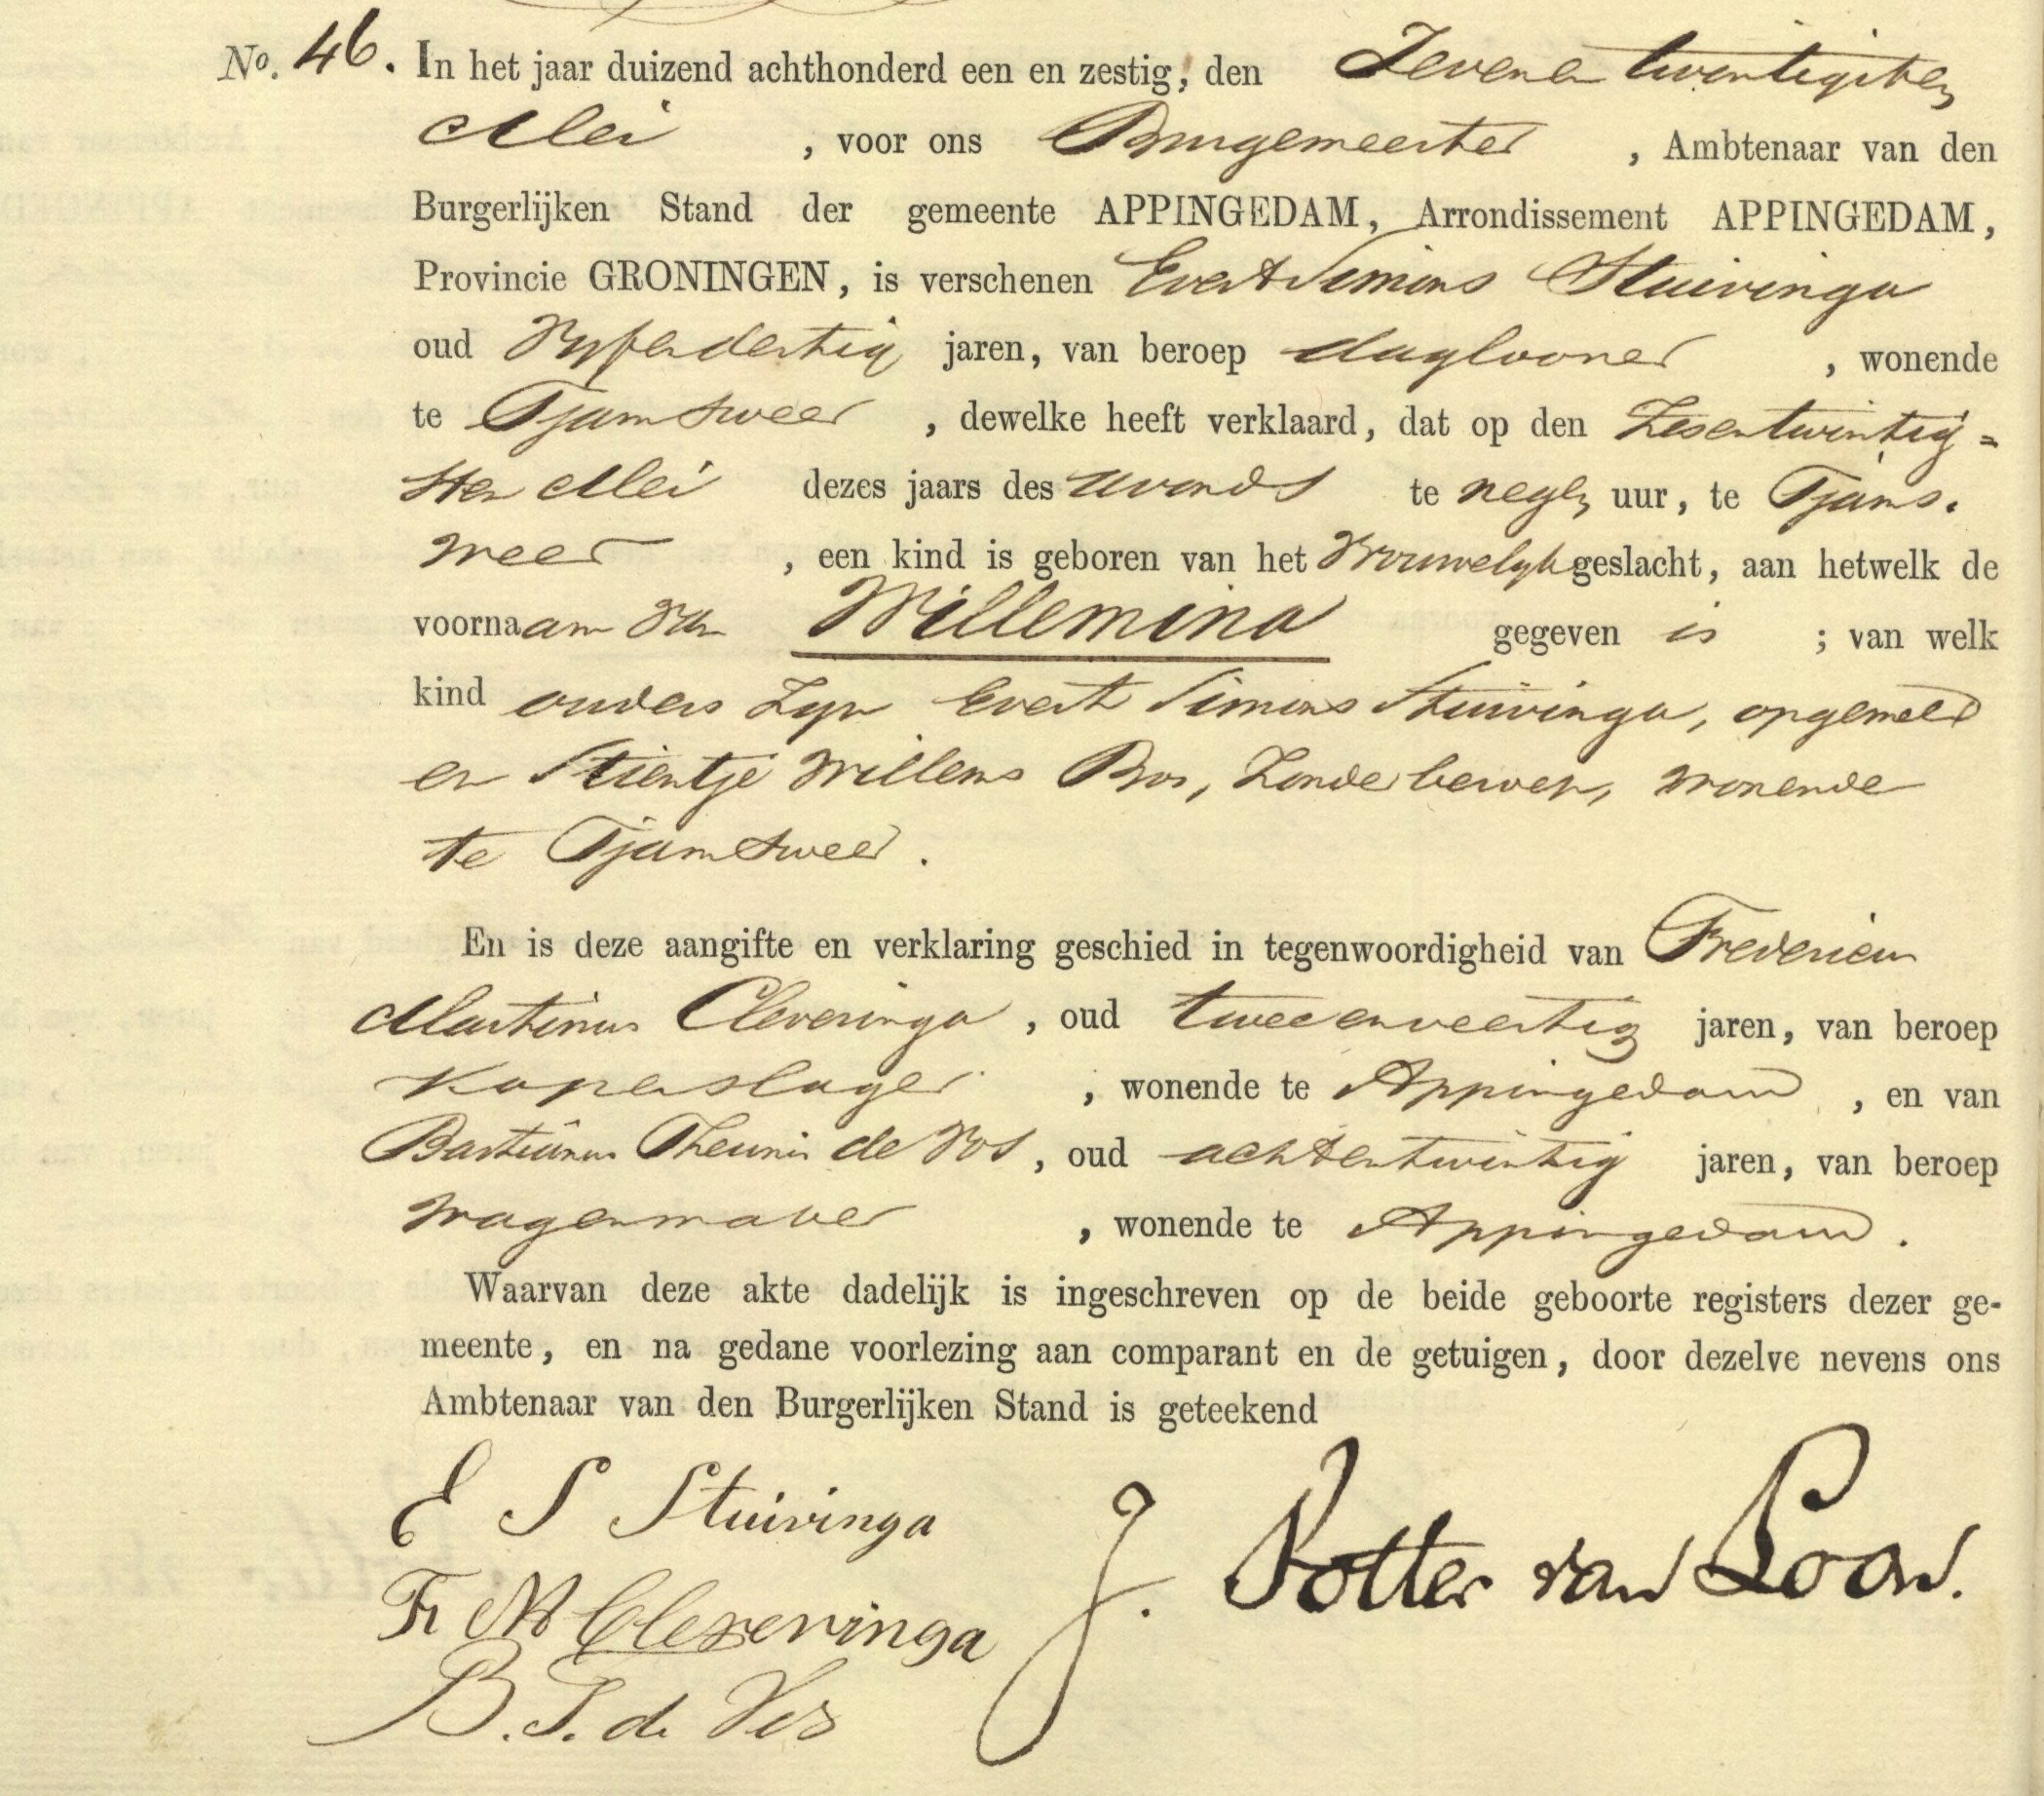 No. 46. In het jaar duizend achthonderd een en zestig, den Zevenentwintigsten
Mei , voor ons Burgemeester , Ambtenaar van den
Burgerlijken Stand der gemeente APPINGEDAM, Arrondissement APPINGEDAM,
Provincie GRONINGEN, is verschenen Evert Simons Stuivinga
oud Vyfendertig jaren, van beroep daglooner , wonende
te Tjamsweer , dewelke heeft verklaard, dat op den Zesentwintig=
sten Mei dezes jaars des avonds te negen uur, te Tjams.
weer , een kind is geboren van het Vrouwelyk geslacht, aan hetwelk de
voornaam van Willemina gegeven is ; van welk
kind ouders Zyn Evert Simons Stuivinga, opgemeld
en Stientje Willems Bos, Zonder beroep, wonende
te Tjamsweer.
En is deze aangifte en verklaring geschied in tegenwoordigheid van Fredericus
Martinus Cleveringa , oud tweeenveertig jaren, van beroep
Koperslager , wonende te Appingedam , en van
Bastianus Theunis de Vos , oud achtentwintig jaren, van beroep
wagenmaker , wonende te Appingedam .
Waarvan deze akte dadelijk is ingeschreven op de beide geboorte registers dezer ge-
meente, en na gedane voorlezing aan comparant en de getuigen, door dezelve nevens ons
Ambtenaar van den Burgerlijken Stand is geteekend
E S Stuivinga
J. Potter van Loon.
Fr M Cleveringa
B. T. de Vos